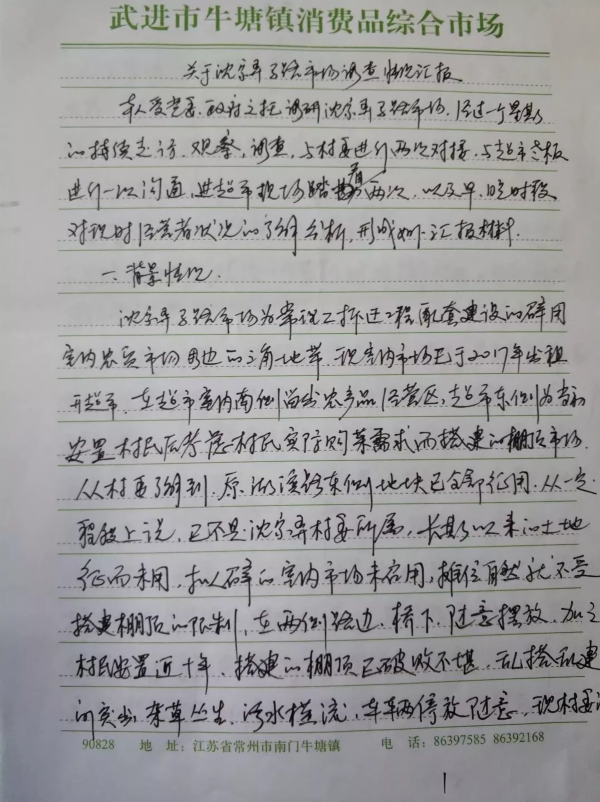 武进市牛塘镇消费品综合市场
关于沈家弄马路市场调查情况汇报
本人受党委、政府之托调研沈家弄马路市场,经过一个星期
的持续走访、观察,调查,与村委进行两次对接,与超市老板
进行一次沟通,进超市现场踏看两次,以及早、晚时段
对现时经营者状况的了解分析,形成如下汇报材料.
一、背景情况.
沈家弄马路市场为常程工拆迁工程配套建设的辟用
室内农贸市场周边的三角地带,现室内市场已于2017年出租
开超市,在超市室内南侧留出农产品经营区,超市东侧为当初
安置村民后考虑村民实际购菜需求而搭建的棚顶市场.
从村委了解到,原湖滨路东侧地块已全部征用,从一定
程度上说,已不是沈家弄村委所属,长期以来的土地
征而未用,拟辟的室内市场未启用,摊位自然就不受
搭建棚顶的限制,在两侧路边、桥下,随意摆放,加之
村民安置近十年,搭建的棚顶已破败不堪,乱搭乱建
的突出,杂草丛生,污水横流,车辆停放随意,现村委
90828 地 址:江苏省常州市南门牛塘镇 电 话:86397585 86392168
1